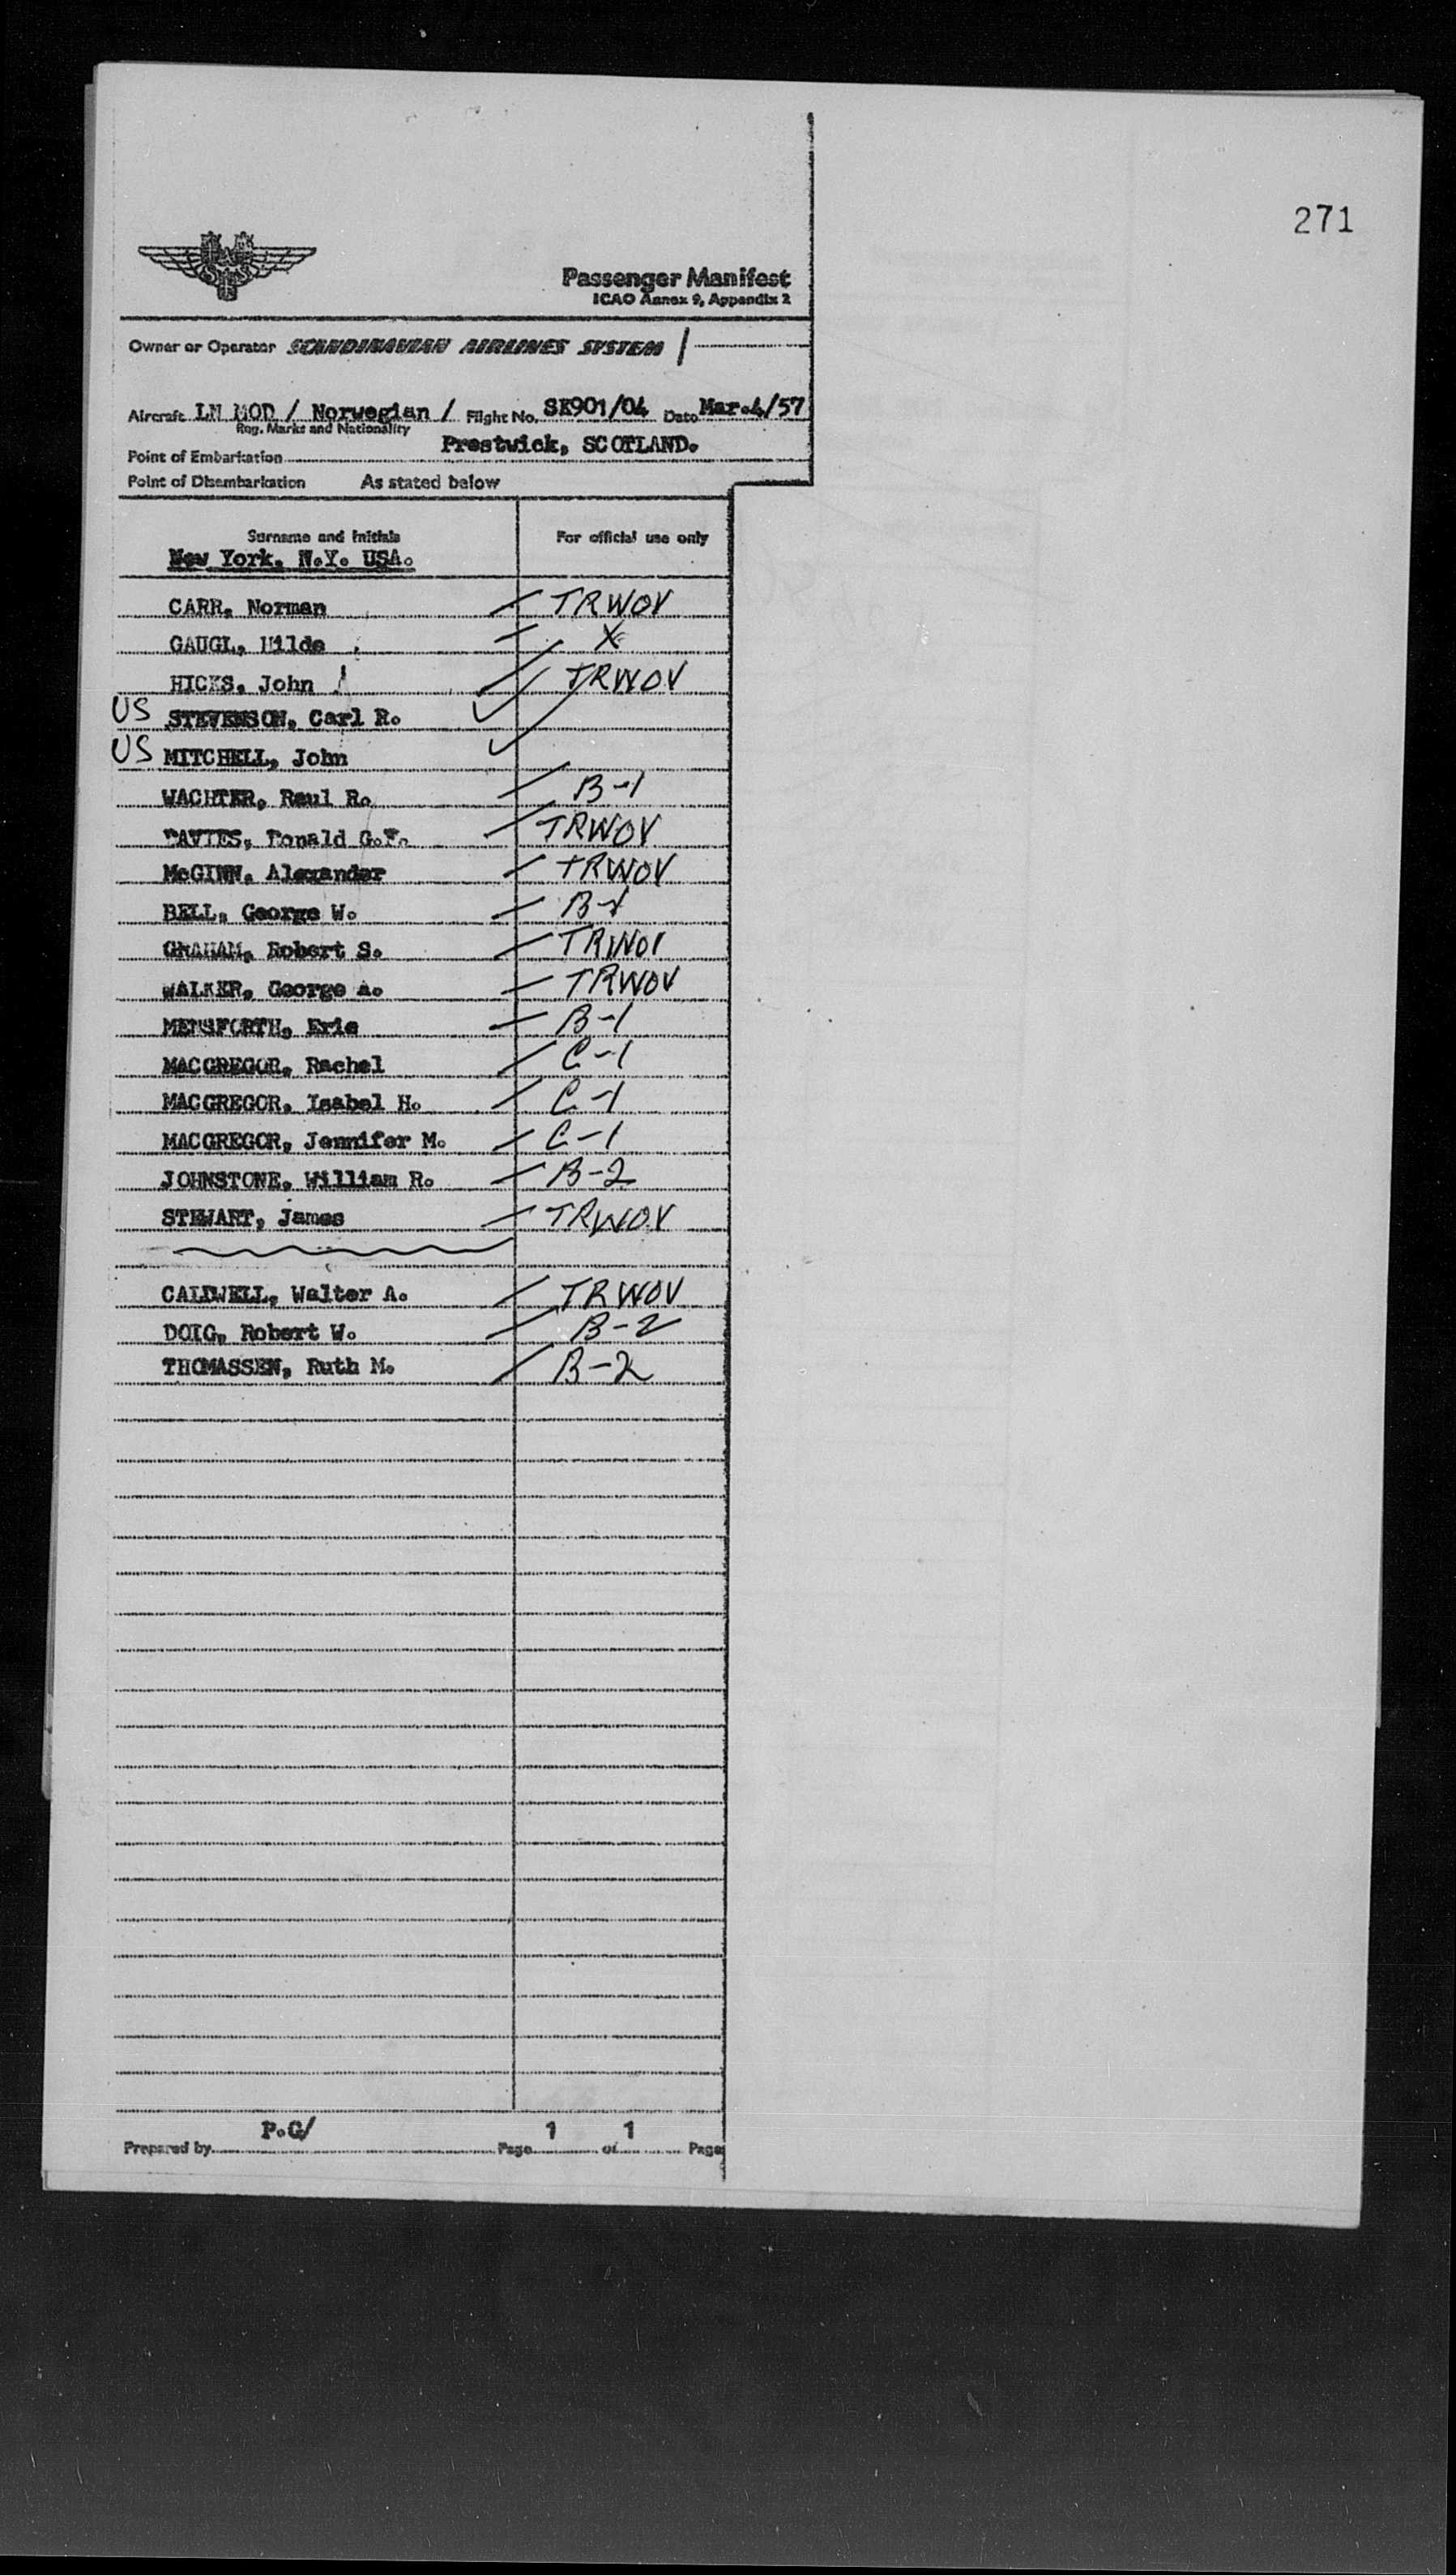 271
SAS
Passenger Manifest
ICAO Annex 9, Appendix 2
Owner or Operator SCANDINAVIAN AIRLINES SYSTEM /
Aircraft LN MOD / Norwegian / Flight No. SK901/04 Date Mar.4/57
Reg. Marks and Nationality
Point of Embarkation Prestwick, SCOTLAND.
Point of Disembarkation As stated below
Surname and Initials For official use only
New York, N.Y. USA.
CARR, Norman TRWOV
GAUGL, Hilde X
HICKS, John TRWOV
US STEVENSON, Carl R.
US MITCHELL, John
WACHTER, Raul R. B-1
DAVIES, Donald G.F. TRWOV
McGINN, Alexander TRWOV
BELL, George W. B-1
GRAHAM, Robert S. TRWOV
WALKER, George A. TRWOV
MENSFORTH, Eric B-1
MACGREGOR, Rachel C-1
MACGREGOR, Isabel H. C-1
MACGREGOR, Jennifer M. C-1
JOHNSTONE, William R. B-2
STEWART, James TRWOV
CALDWELL, Walter A. TRWOV
DOIG, Robert W. B-2
THOMASSEN, Ruth M. B-2
Prepared by P.G/ Page 1 of 1 Page